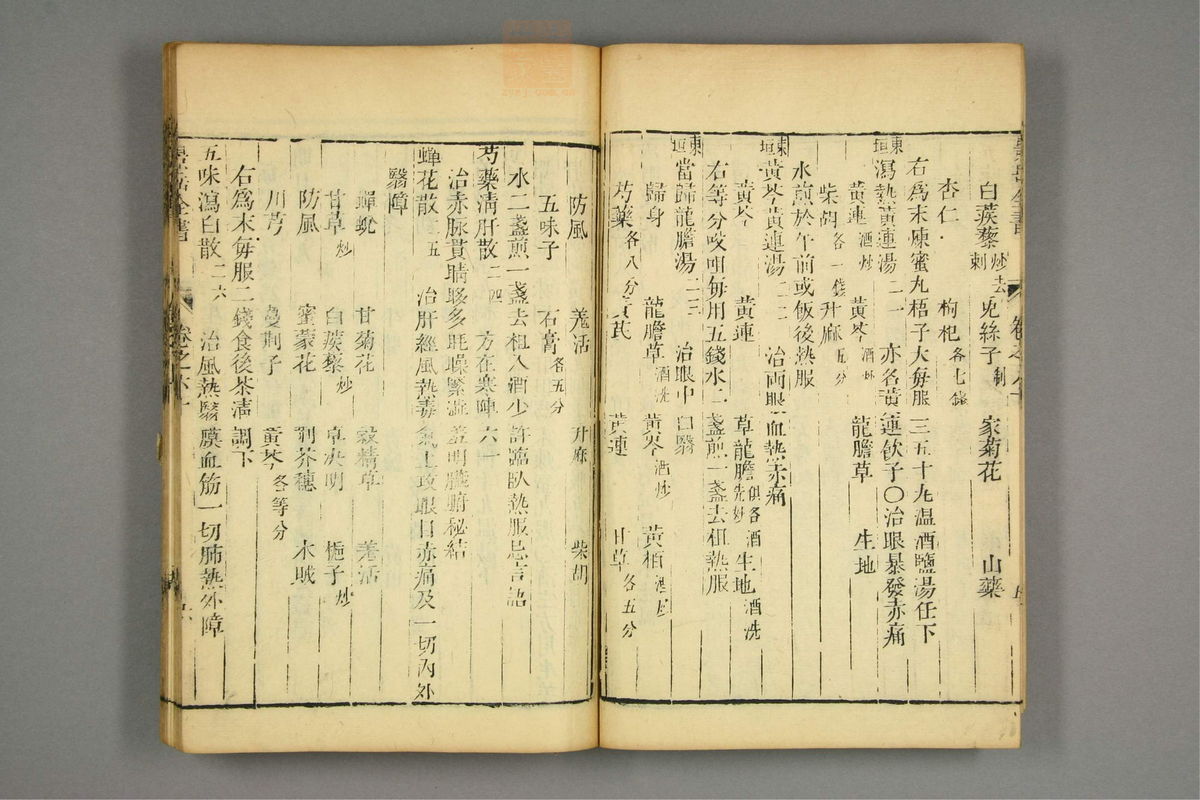 白蒺藜炒去刺 兔絲子制 家菊花 山藥
杏仁 枸杞各七錢
右爲末煉蜜丸梧子大每服三五十丸温酒鹽湯任下
東垣瀉熱黃連湯二一 亦名黃連飲子○治眼暴發赤痛
黃連酒炒 黃芩酒炒 龍膽草 生地
柴胡各一錢 升麻五分
水煎於午前或飯後熱服
東垣黃芩黃連湯二二 治兩眼血熱赤痛
黃芩 黃連 草龍膽先炒俱各酒 生地酒洗
右等分㕮咀每用五錢水二盞煎一盞去柤熱服
東垣當歸龍膽湯二三 治眼中白翳
歸身 龍膽草酒洗 黃芩酒炒 黃栢
芍藥各八分 黃芪 黃連 甘草各五分
防風 羗活 升麻 柴胡
五味子 石膏各五分
水二盞煎一盞去柤入酒少許臨臥熱服忌言語
芍藥清肝散二四 方在寒陣六一
治赤脉貫睛眵多眊矂緊澀羞明臟腑秘結
蟬花散五 治肝經風熱毒氣上攻眼目赤痛及一切內外
翳障
蟬蛻 甘菊花 穀精草 羗活
甘草炒 白蒺藜炒 草決明 梔子炒
防風 蜜蒙花 荆芥穗 木賊
川芎 蔓荆子 黃芩各等分
右爲末每服二錢食後茶清調下
五味瀉白散二六 治風熱翳膜血筋一切肺熱外障